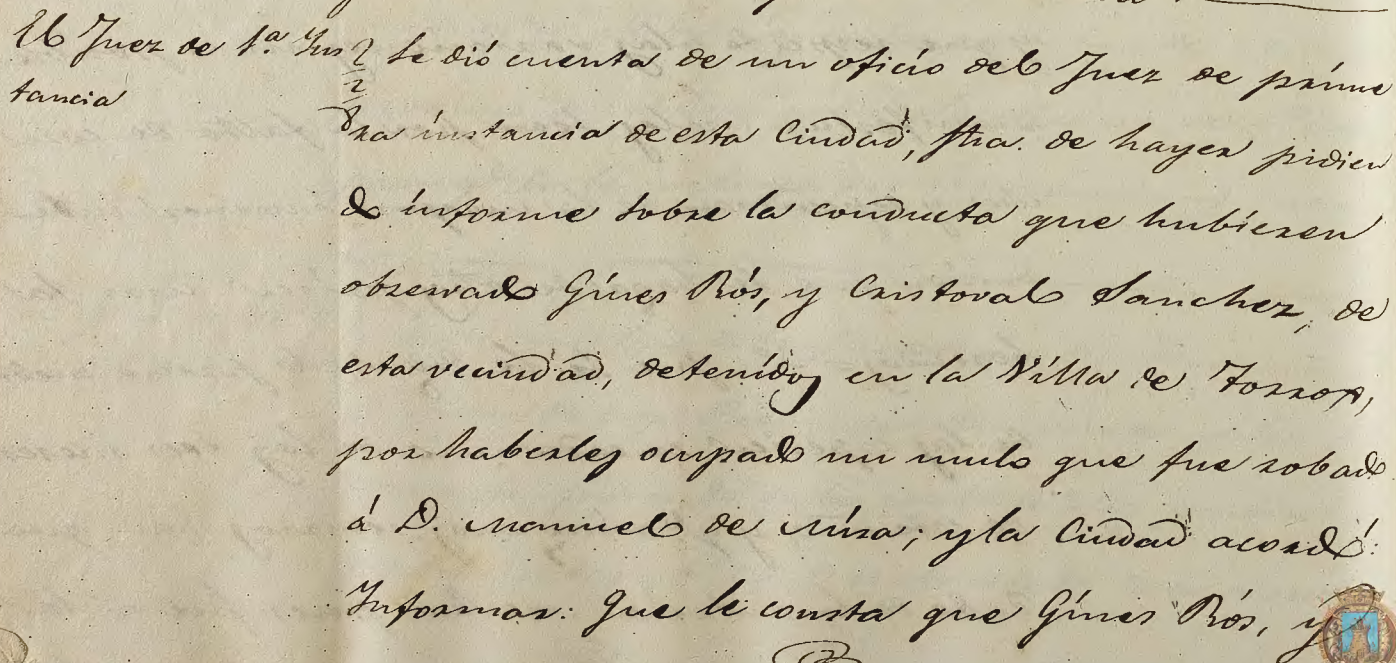 El Juez de 1.ª Ins
tancia
Se dió cuenta de un oficio del Juez de prime
ra instancia de esta Ciudad, fha. de hayer pidien
do informe sobre la conducta que hubieren
observado Gines Rós, y Cristoval Sanchez, de
esta vecindad, detenidos en la Villa de Torrox,
por haberles ocupado un mulo que fue robado
á D. Manuel de Mira; y la Ciudad acordó:
Informar: Que le consta que Gines Rós, y